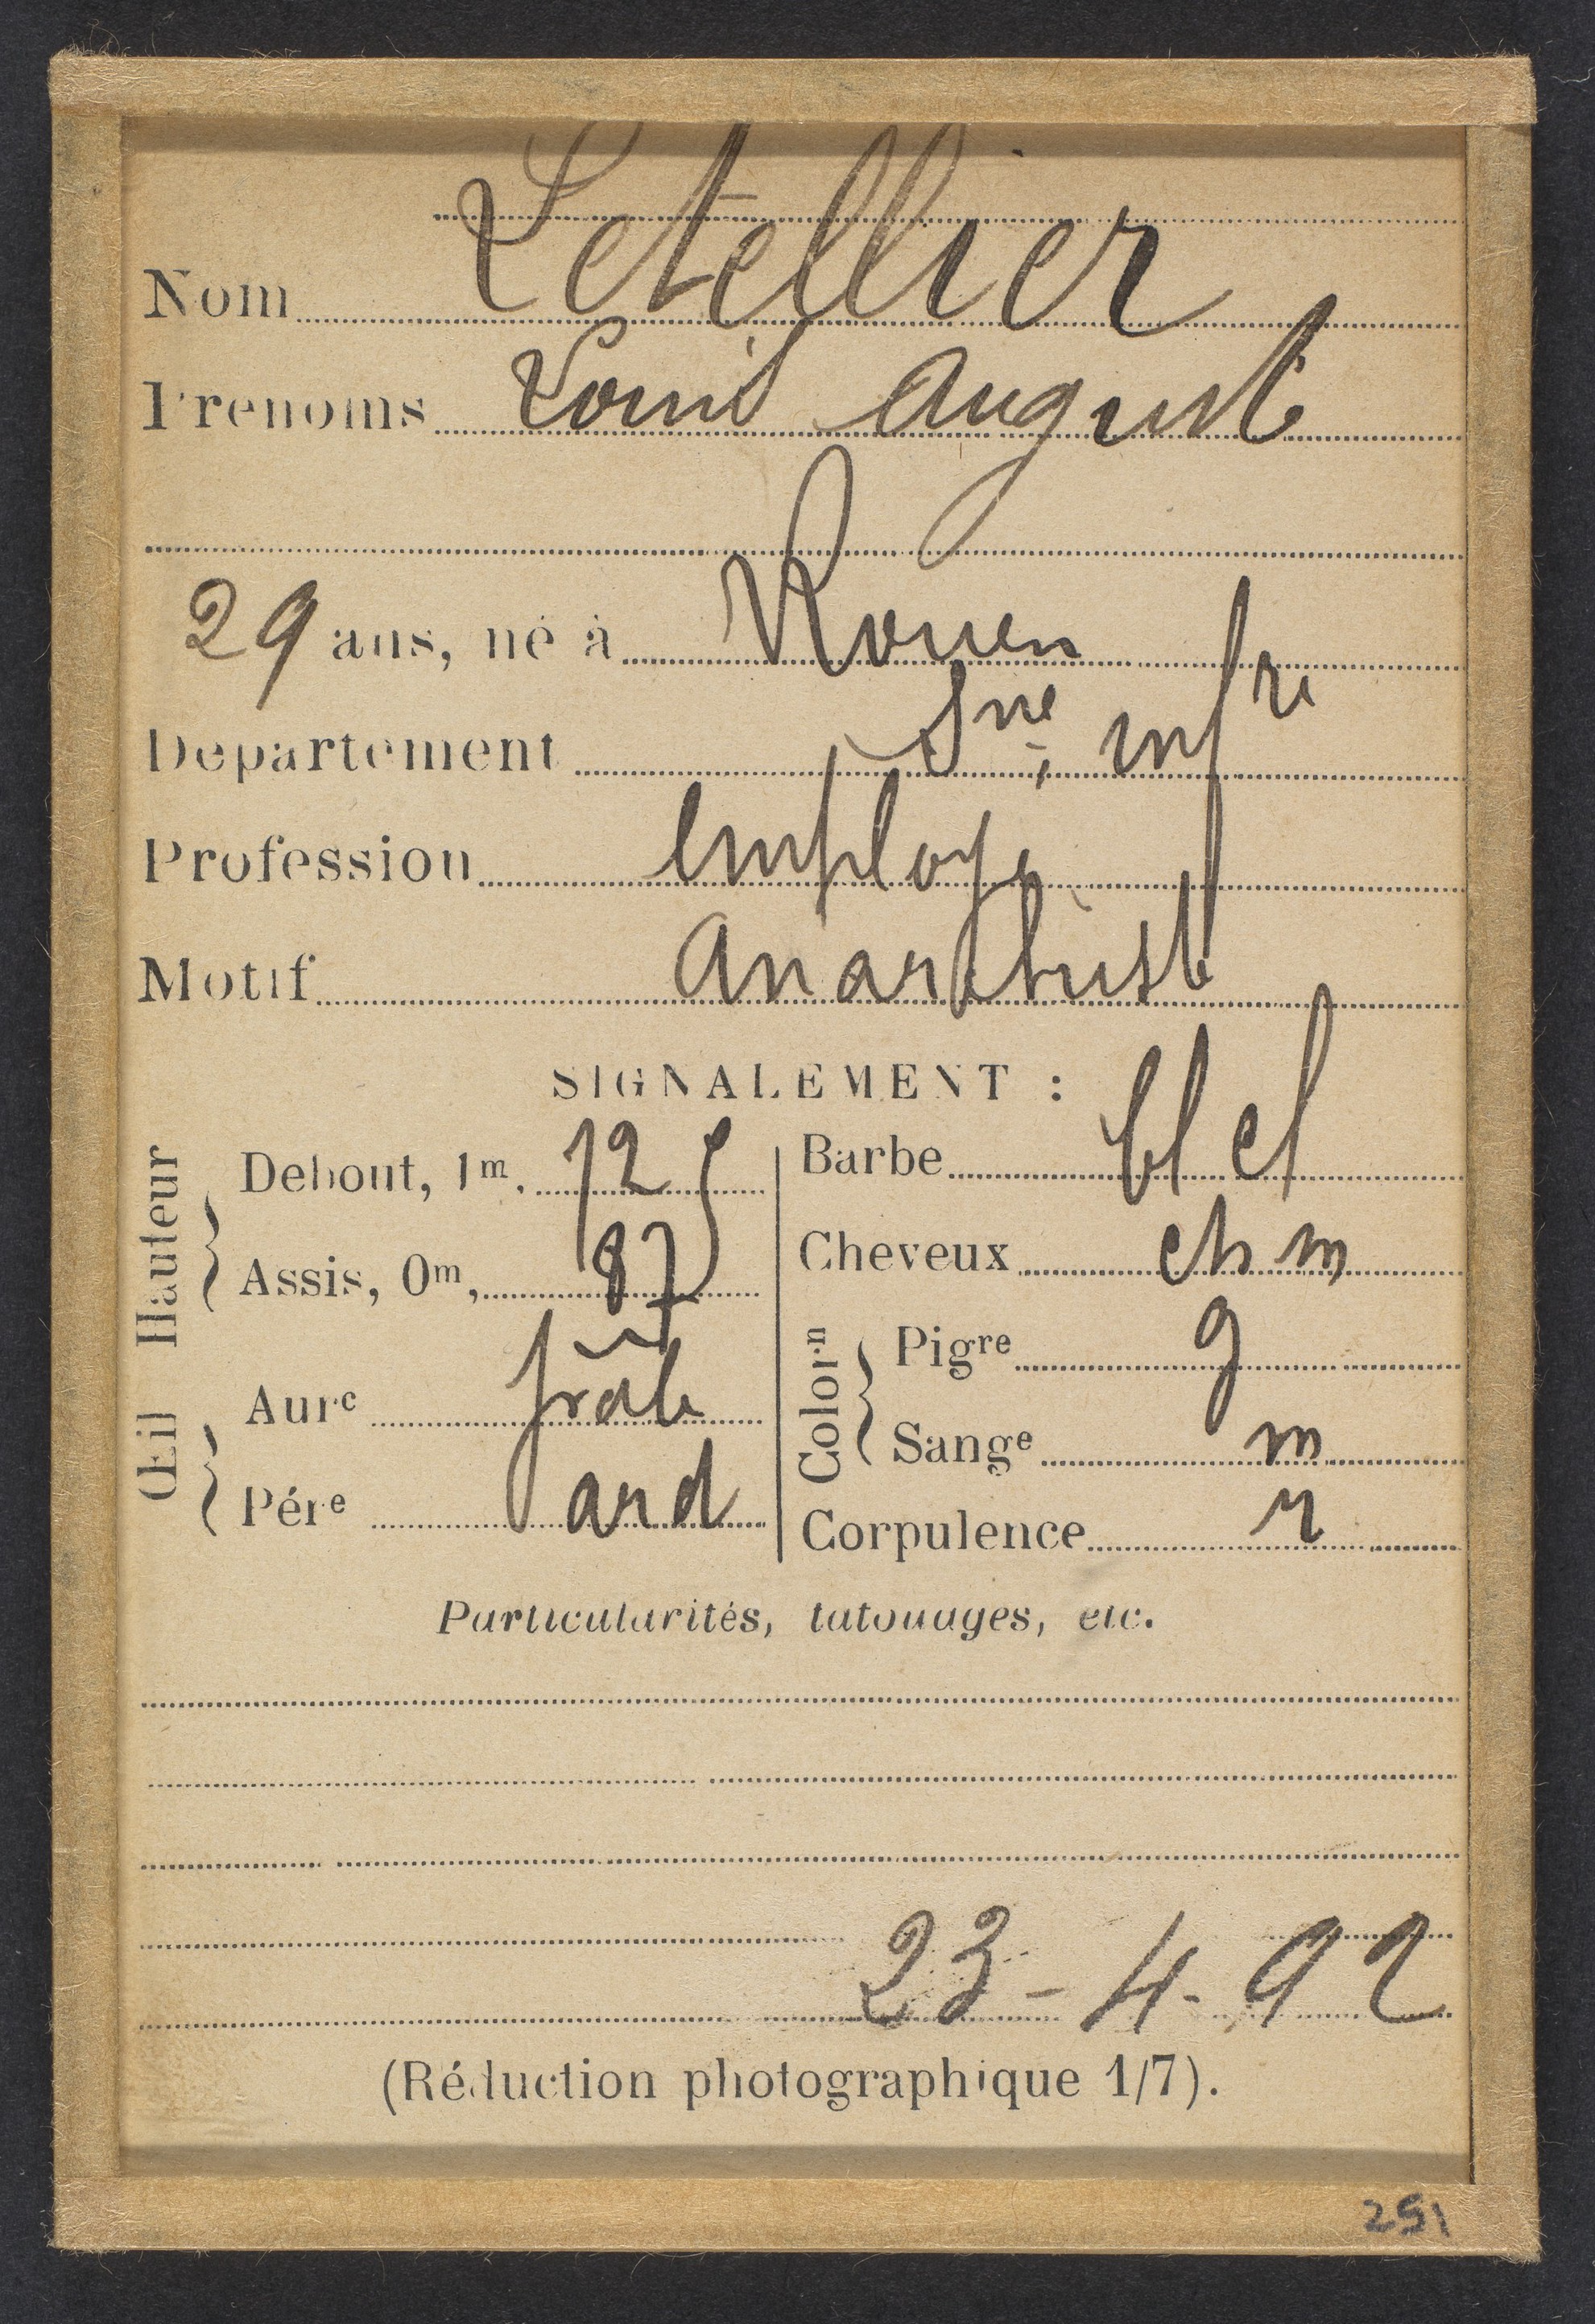 Nom Letellier
Prénoms Louis Auguste
29 ans, né à Rouen
Département Sne infre
Profession employé
Motif Anarchiste
SIGNALEMENT :
Hauteur
Debout, 1m, 72 5
Assis, 0m, 87
Œil
Aure
Pére ard
Barbe bl cl
Cheveux ch m
Color.n
Pigre g
Sange m
Corpulence
Particularités, tatouages, etc.
23-4-92
(Réduction photographique 1/7).
291